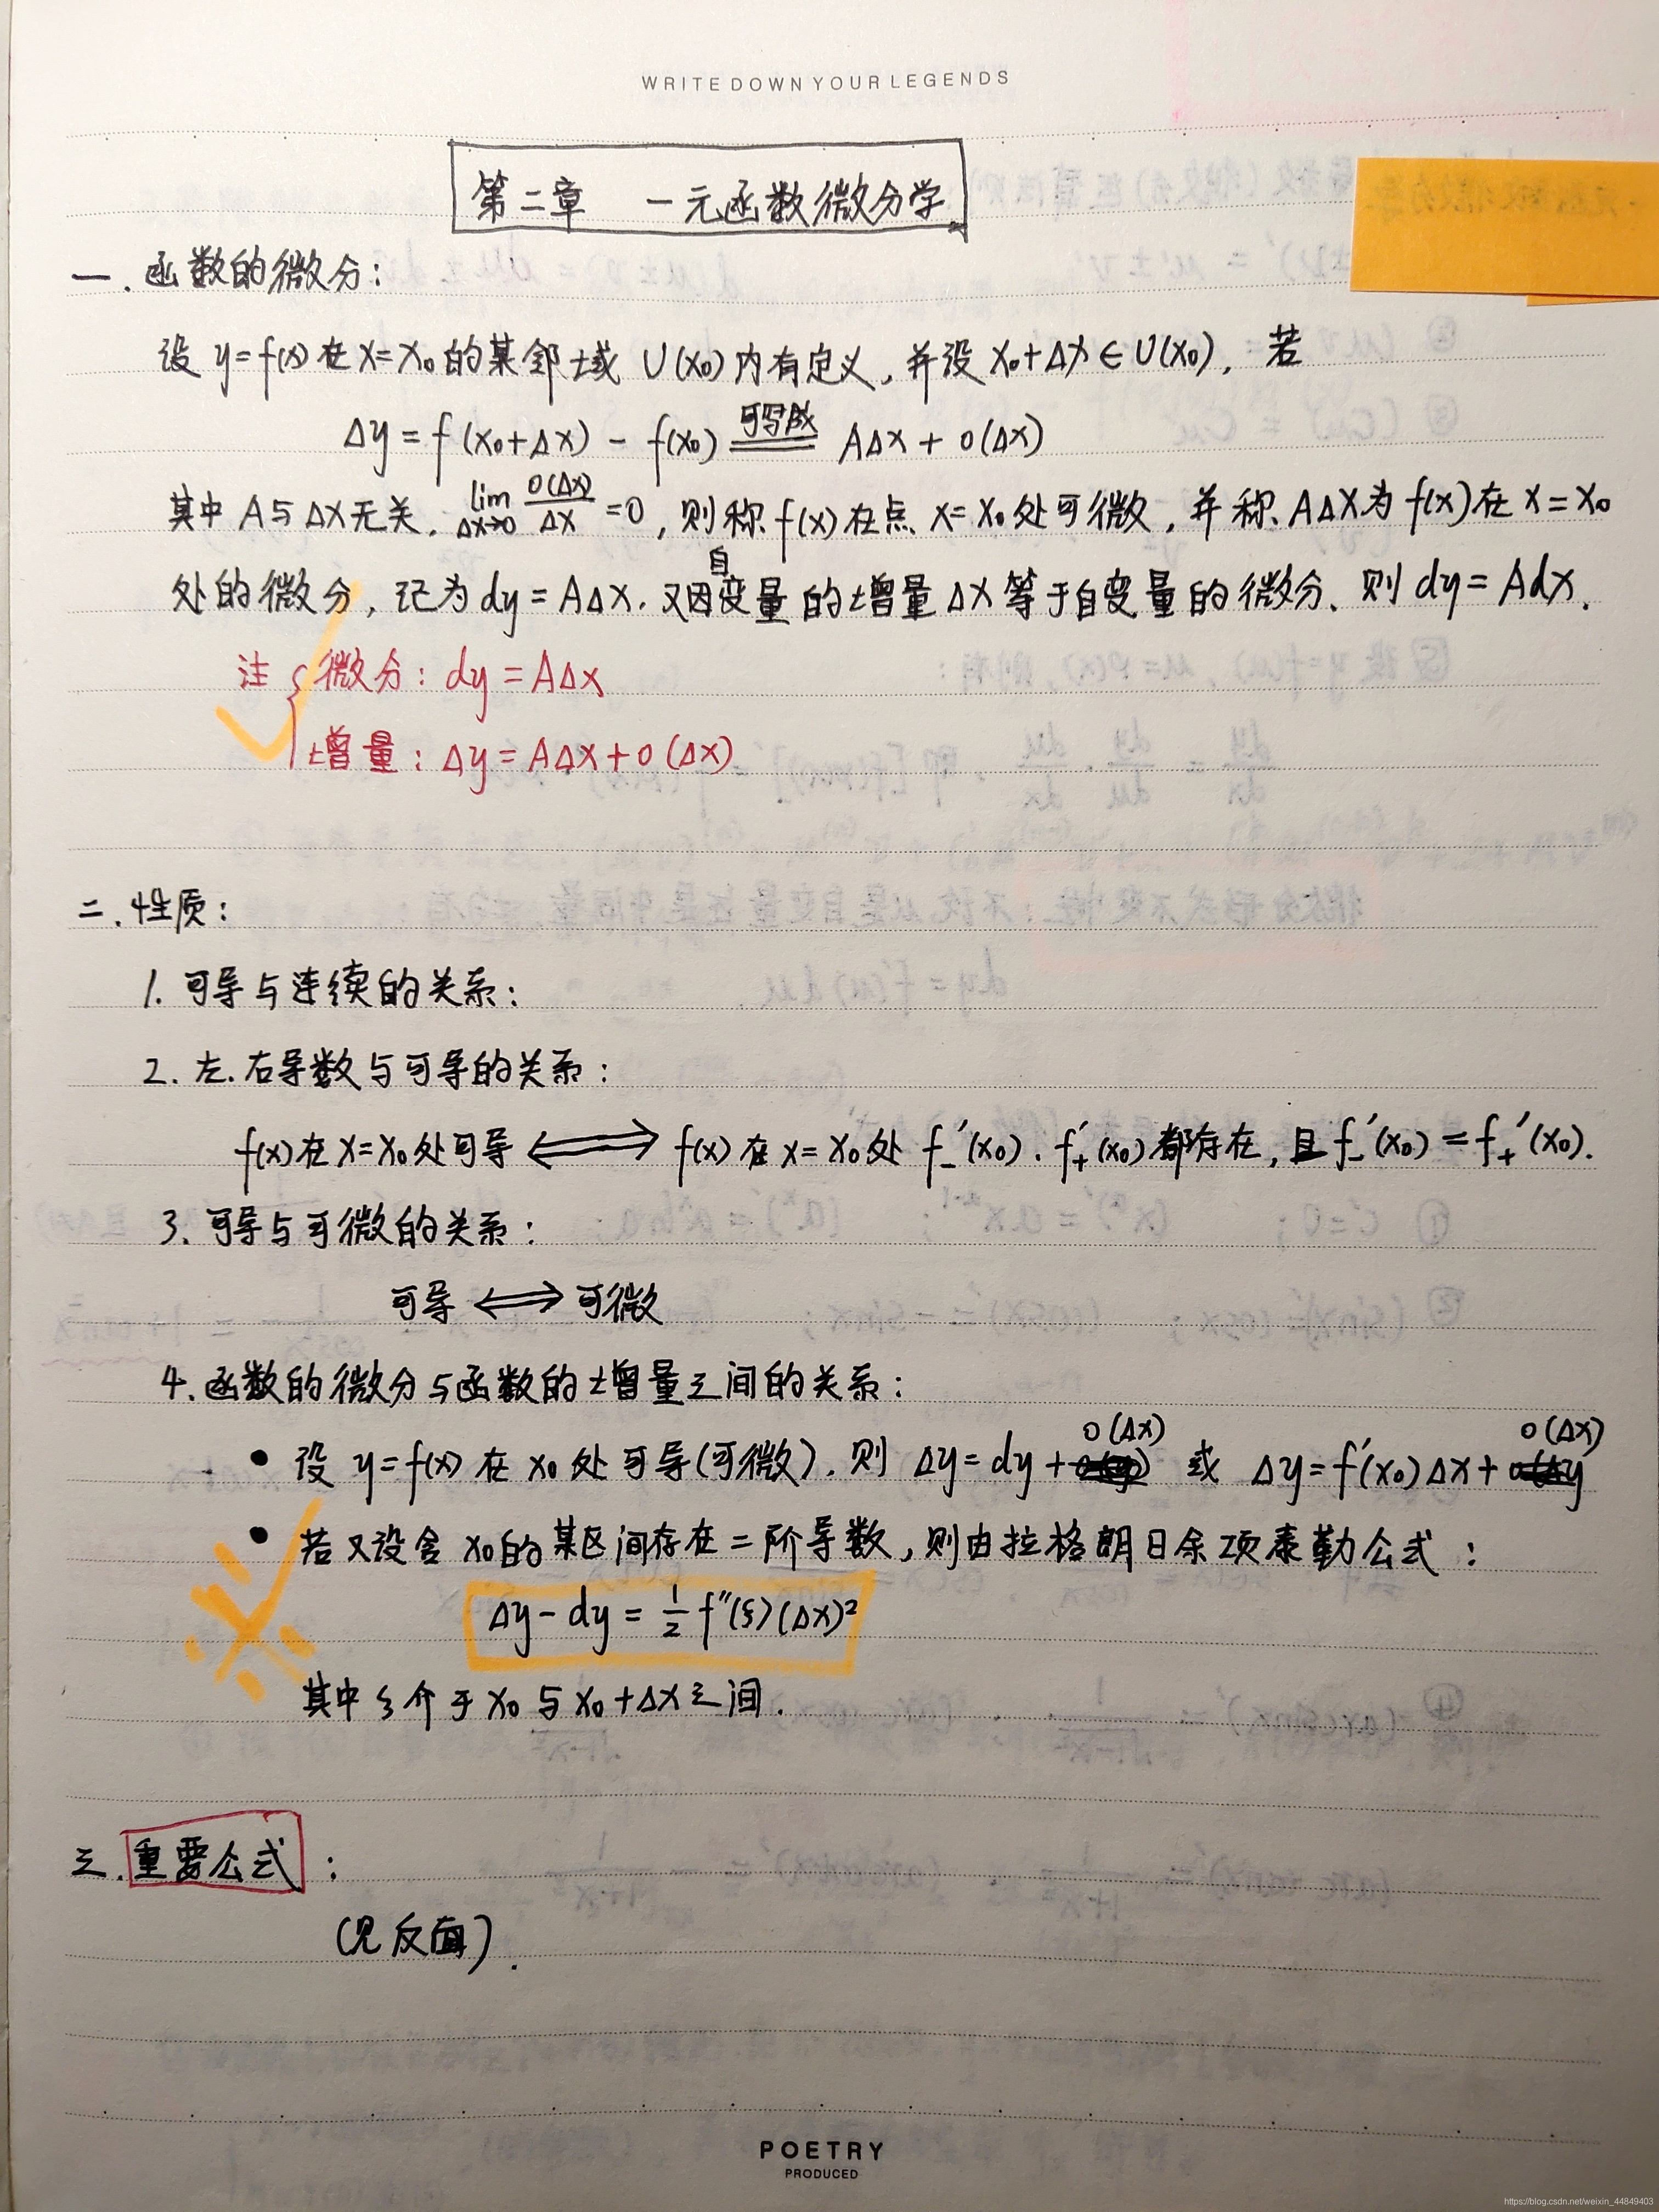 WRITE DOWN YOUR LEGENDS
第二章 一元函数微分学
一.函数的微分:
设 y=f(x) 在 x=x₀ 的某邻域 U(x₀) 内有定义,并设 x₀+Δx∈U(x₀),若
Δy = f(x₀+Δx) - f(x₀) 可写成 AΔx + o(Δx)
其中 A与Δx无关, lim Δx→0 o(Δx)/Δx =0, 则称 f(x) 在点 x=x₀ 处可微, 并称 AΔx为 f(x) 在 x=x₀
处的微分, 记为 dy=AΔx. 又因自变量的增量Δx等于自变量的微分、则 dy=Adx.
注 { 微分: dy=AΔx
增量: Δy=AΔx+o(Δx)
二.性质:
1. 可导与连续的关系:
2. 左.右导数与可导的关系:
f(x)在x=x₀处可导 ⟺ f(x)在x=x₀处 f₋′(x₀).f₊′(x₀)都存在,且f₋′(x₀)=f₊′(x₀).
3. 可导与可微的关系:
可导 ⟺ 可微
4. 函数的微分与函数的增量之间的关系:
• 设 y=f(x) 在 x₀ 处可导(可微). 则 Δy=dy+o(Δx) 或 Δy=f′(x₀)Δx+o(Δx)
• 若又设含 x₀的某区间存在二阶导数,则由拉格朗日余项泰勒公式:
Δy-dy = ½ f″(ξ)(Δx)²
其中ξ介于 x₀ 与 x₀+Δx之间.
三.重要公式:
(见反面).
POETRY
PRODUCED
https://blog.csdn.net/weixin_44849403